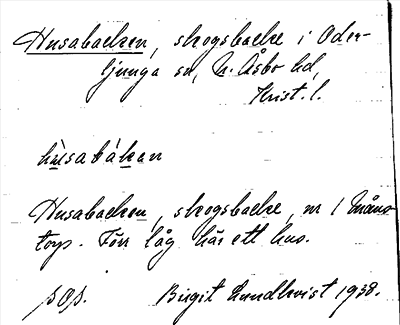 Husabacken, skogsbacke i Oder-
ljunga sn, N. Åsbo hd,
Krist. l.
hùsabákan
Husabacken, skogsbacke, nr 1 Måns-
torp. Förr låg här ett hus.
pOp. Birgit Lundkvist 1938.